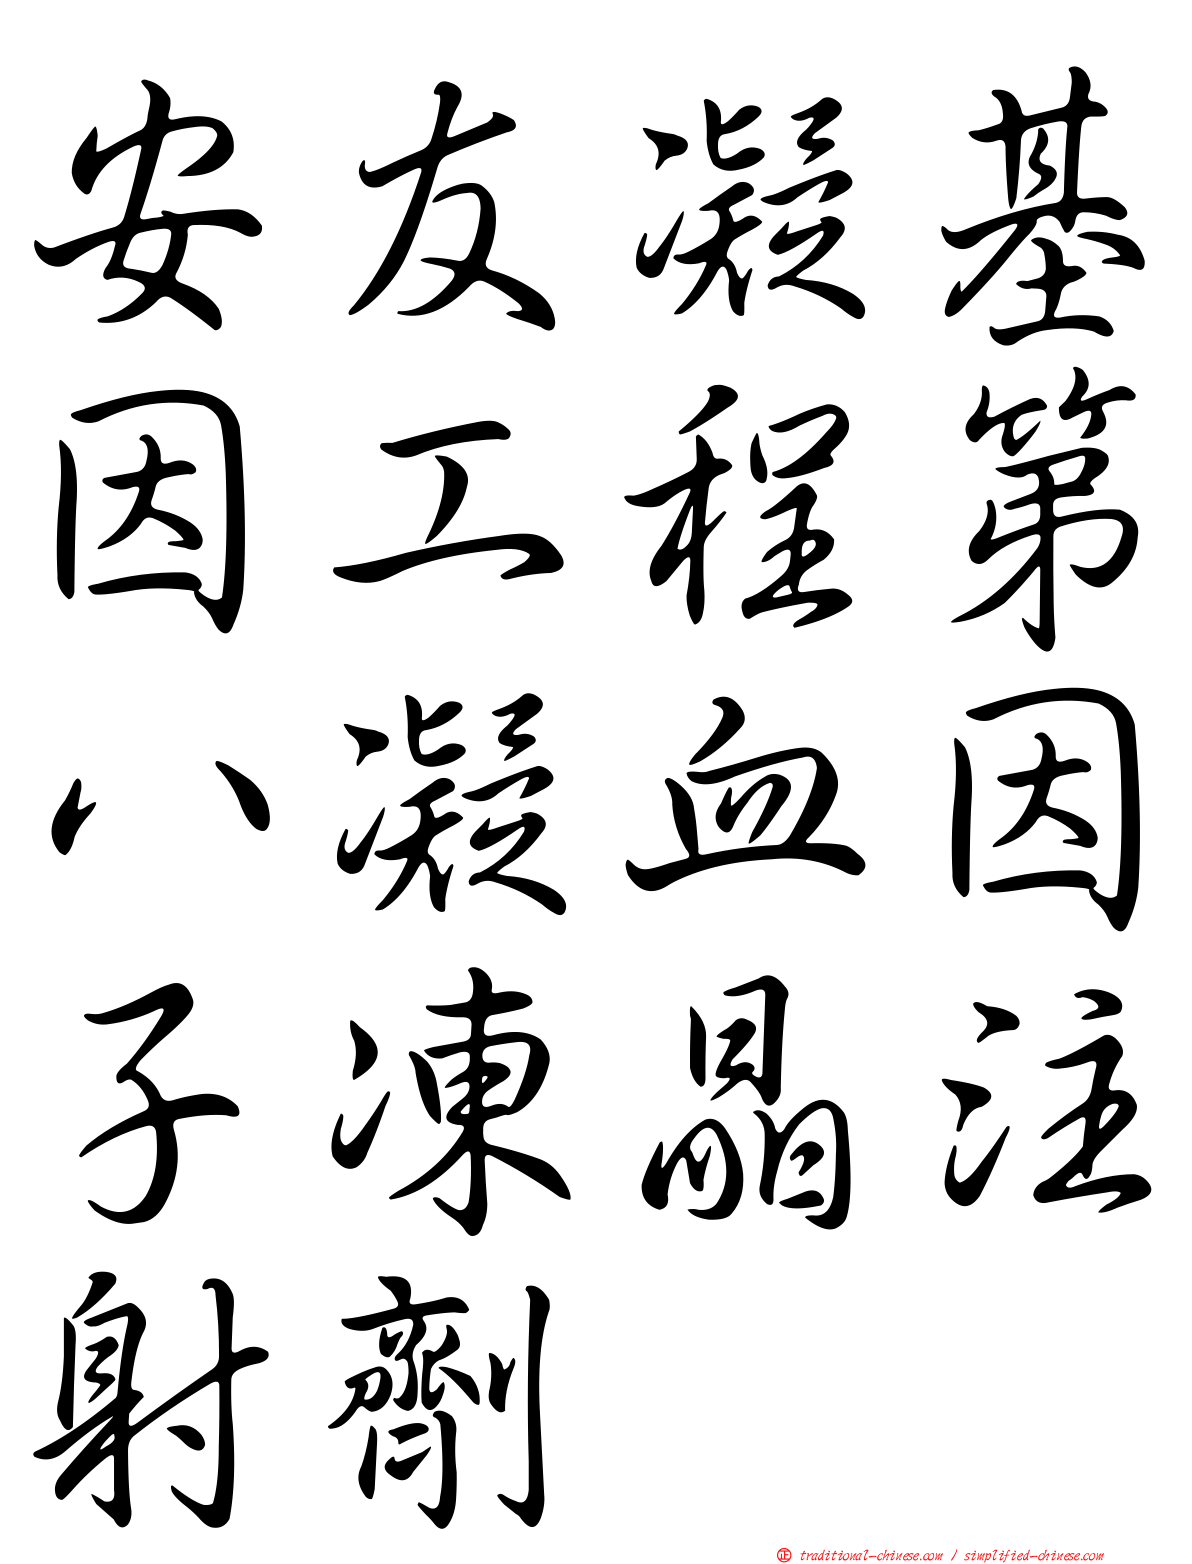 安友凝基
因工程第
八凝血因
子凍晶注
射劑
正 traditional-chinese.com / simplified-chinese.com